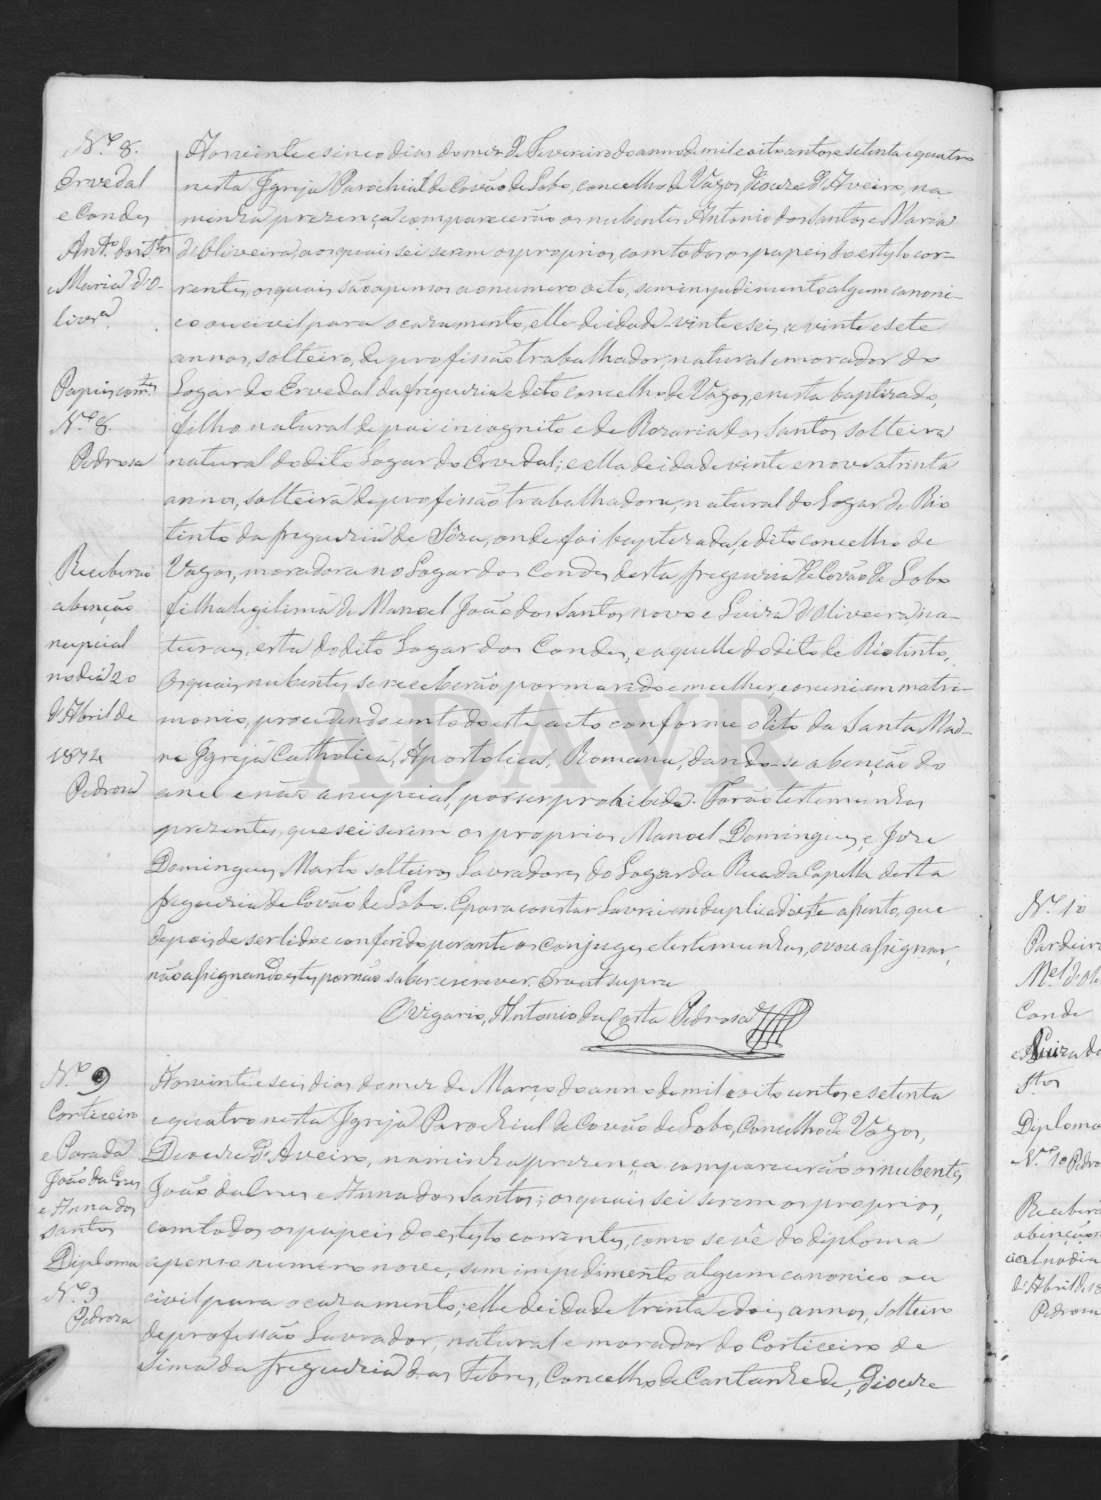 Nº 8.
Ervedal
e Condes
Antº dos Stos
e Maria d'O-
livrª
Papeis comtes
Nº 8.
Pedrosa
Receberão
a benção
nupcial
no dia 20
d'Abril de
1874
Pedrosa
Aos vinte e sinco dias do mez de Fevereiro do anno de mil e oito centos e setenta e quatro
nesta Igreja Parochial de Covão de Lobo, concelho de Vagos, Diocese d'Aveiro, na
minha prezença comparecerão os nubentes Antonio dos Santos e Maria
de Oliveira, aos quais sei serem os proprios, com todos os papeis do estylo cor-
rentes, os quais são apensos ao numero oito, sem impedimento algum canoni-
co ou civil para o cazamento, elle de idade vinte e seis a vinte e sete
annos, solteiro, de profissão trabalhador, natural e morador do
Logar do Ervedal da freguezia e dito concelho de Vagos, e nesta baptizado,
filho natural de pai incognito e de Rozaria dos Santos solteira
natural do dito Logar do Ervedal; e ella de idade vinte e nove a trinta
annos, solteira de profissão trabalhadora, natural do Logar de Rio
tinto da freguezia de Sôza, onde foi baptizada, e dito concelho de
Vagos, moradora no Logar dos Condes desta freguezia de Covão de Lobo
filha legitima de Manoel João dos Santos novo e Luiza d'Oliveira na-
turaes, esta do dito Logar dos Condes, e aquelle do dito de Riotinto,
Os quais nubentes se receberão por marido e mulher, e os uni em matri-
monio, procedendo em todo este acto conforme o Rito da Santa Mad-
re Igreja Catholica, Apostolica, Romana, dando-se a benção do
anel e não a nupcial, por ser prohibida. Forão testemunhas
prezentes, que sei serem os proprios Manoel Domingues, e Joze
Domingues Marto solteiros Lavradores do Logar da Rua da Capella desta
freguezia de Covão de Lobo. E para constar lavrei em duplicado este assento, que
depois de ser lido e conferido perante os conjuges e testemunhas, o vou assignar,
não assignando estes por não saber escrever. Era ut supra
O Vigario, Antonio da Costa Pedrosa
Nº 9
Corticeiro
e Parada
João da Cruz
e Anna dos
Santos
Diploma
Nº 9
Pedroza
Aos vinte e seis dias do mez de Março do anno de mil e oito centos e setenta
e quatro nesta Igreja Parochial de Covão de Lobo, Concelho de Vagos,
Diocese d'Aveiro, na minha prezença comparecerão os nubentes
João da Cruz e Anna dos Santos; os quais sei serem os proprios,
com todos os papeis do estylo correntes, como se vê do diploma
apenso numero nove, sem impedimento algum canonico ou
civil para o cazamento; elle de idade trinta e dois annos, solteiro
de profissão Lavrador, natural e morador do Corticeiro de
Sima da freguezia das Febres, Concelho de Cantanhede, Diocese
Nº 10
Condé
e Luiza do
Stos
Diploma
Nº 10 Pedro
a benção
cial no dia
d'Abril de 18
Pedrosa
ADAVR